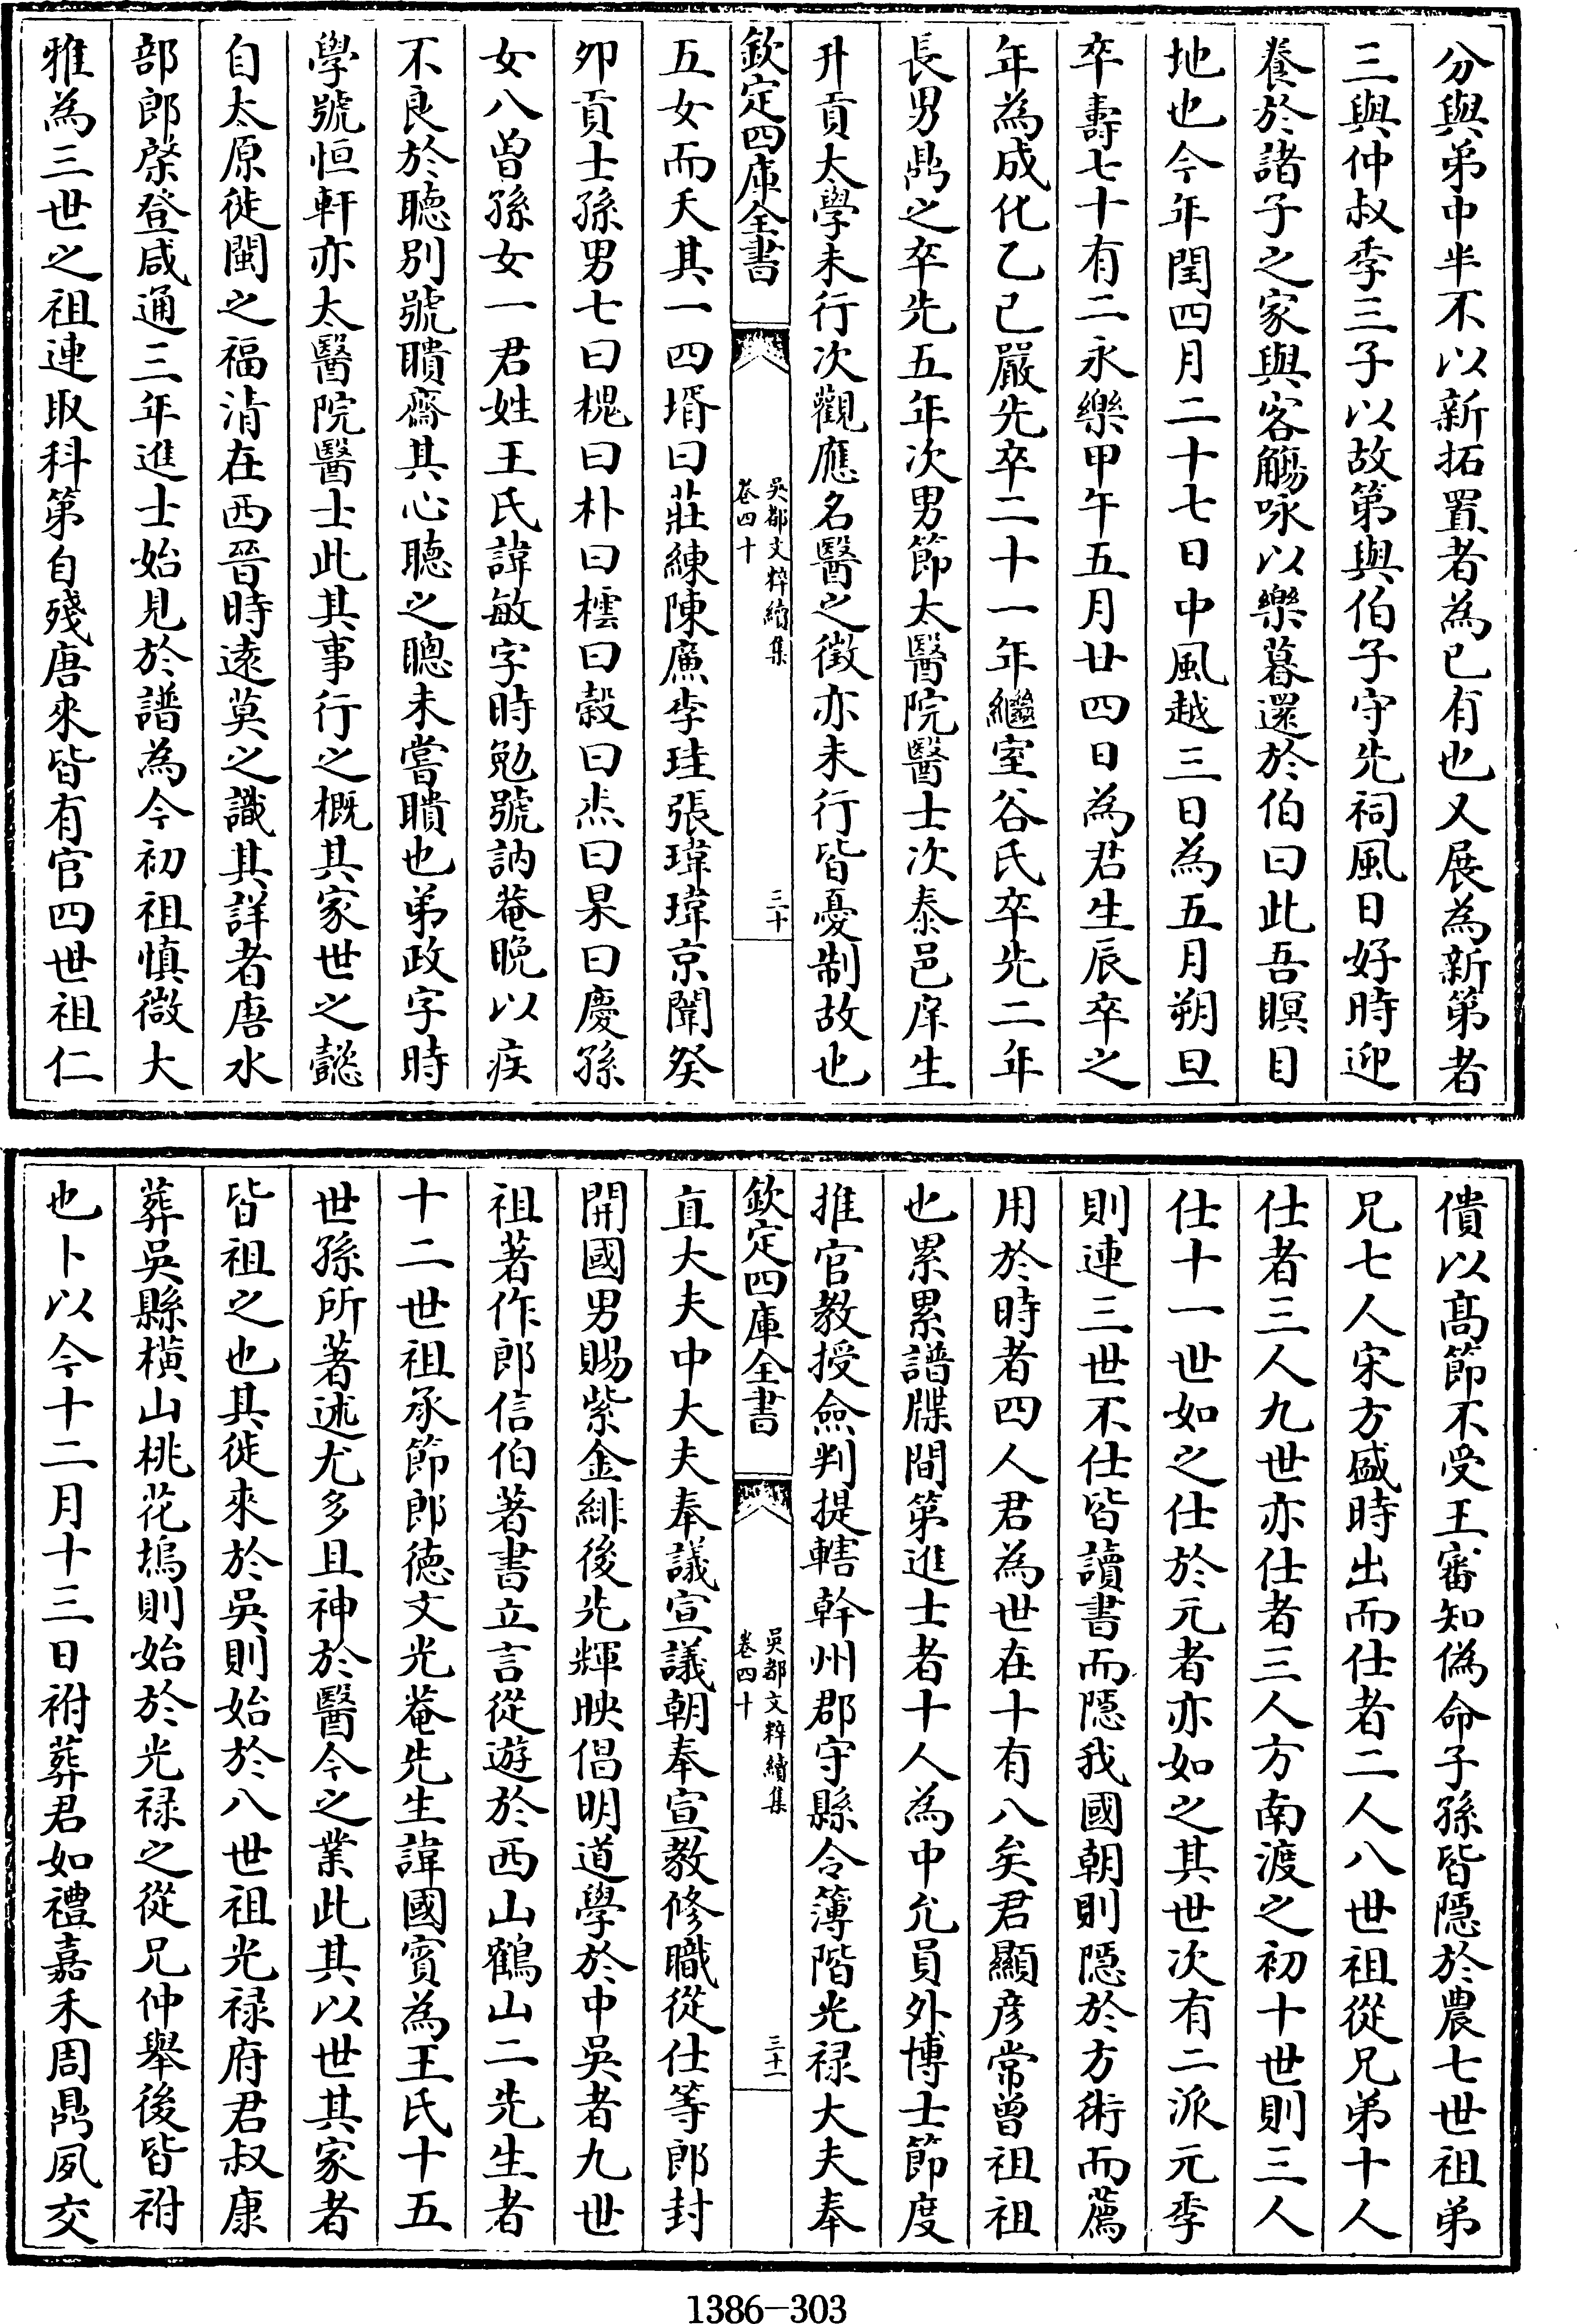 分與弟中半不以新拓置者為已有也又展為新第者
三與仲叔季三子以故第與伯子守先祠風日好時迎
養於諸子之家與客觴咏以樂暮還於伯曰此吾瞑目
地也今年閏四月二十七日中風越三日為五月朔旦
卒壽七十有二永樂甲午五月廿四日為君生辰卒之
年為成化乙已嚴先卒二十一年繼室谷氏卒先二年
長男鼎之卒先五年次男節太醫院醫士次泰邑庠生
升貢太學未行次觀應名醫之徴亦未行皆憂制故也
欽定四庫全書
吳都文粹續集
卷四十
三十
五女而夭其一四壻曰莊練陳廉李珪張瑋瑋京闈癸
夘貢士孫男七曰槐曰朴曰橒曰榖曰烝曰杲曰慶孫
女八曽孫女一君姓王氏諱敏字時勉號訥菴晩以疾
不良於聽别號聵齋其心聽之聰未嘗聵也弟政字時
學號恒軒亦太醫院醫士此其事行之概其家世之懿
自太原徙閩之福清在西晉時逺莫之識其詳者唐水
部郎棨登咸通三年進士始見於譜為今初祖慎微大
雅為三世之祖連取科第自殘唐來皆有官四世祖仁
僙以髙節不受王審知偽命子孫皆隠於農七世祖弟
兄七人宋方盛時出而仕者二人八世祖從兄弟十人
仕者三人九世亦仕者三人方南渡之初十世則三人
仕十一世如之仕於元者亦如之其世次有二派元季
則連三世不仕皆讀書而隠我國朝則隠於方術而薦
用於時者四人君為世在十有八矣君顯彦常曽祖祖
也累累譜牒間第進士者十人為中允員外博士節度
推官教授僉判提轄幹州郡守縣令簿階光禄大夫奉
欽定四庫全書
吳都文粹續集
卷四十
三十一
直大夫中大夫奉議宣議朝奉宣教修職從仕等郎封
開國男賜紫金緋後先輝映倡明道學於中吳者九世
祖著作郎信伯著書立言從遊於西山鶴山二先生者
十二世祖承節郎徳文光菴先生諱國賓為王氏十五
世孫所著述尤多且神於醫今之業此其以世其家者
皆祖之也其徙來於吳則始於八世祖光禄府君叔康
葬吳縣横山桃花塢則始於光禄之從兄仲舉後皆祔
也卜以今十二月十三日祔葬君如禮嘉禾周鼎夙交
1386-303